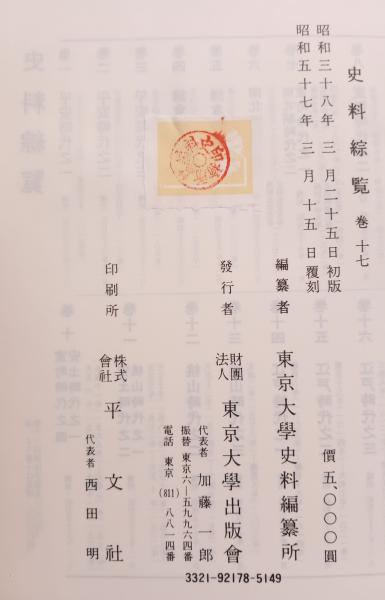 史料綜覧 巻十七
昭和三十八年 三月二十五日初版
昭和五十七年 三月十五日覆刻
價 五、〇〇〇圓
編纂者 東京大學史料編纂所
發行者 財團法人 東京大學出版會
代表者 加藤一郎
振替 東京六―五九九六四番
電話 東京(811)八八一四番
印刷所 株式會社 平文社
代表者 西田明
3321-92178-5149